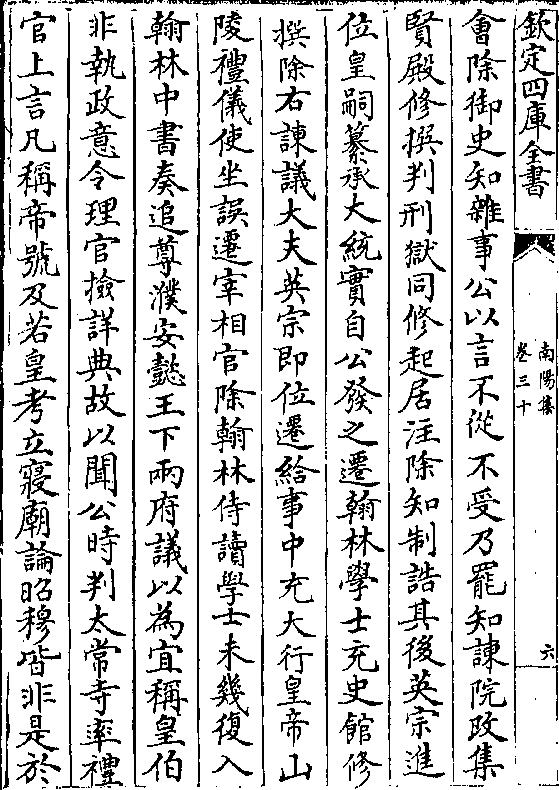 欽定四庫全書
南陽集
卷三十
六
會除御史知雜事公以言不從不受乃罷知諫院改集
賢殿修撰判刑獄同修起居注除知制誥其後英宗進
位皇嗣纂承大統實自公發之遷翰林學士充史館修
撰除右諫議大夫英宗即位遷給事中充大行皇帝山
陵禮儀使坐誤遷宰相官除翰林侍讀學士未幾復入
翰林中書奏追尊濮安懿王下兩府議以為宜稱皇伯
非執政意令理官撿詳典故以聞公時判太常寺率禮
官上言凡稱帝號及若皇考立寢廟論昭穆皆非是於